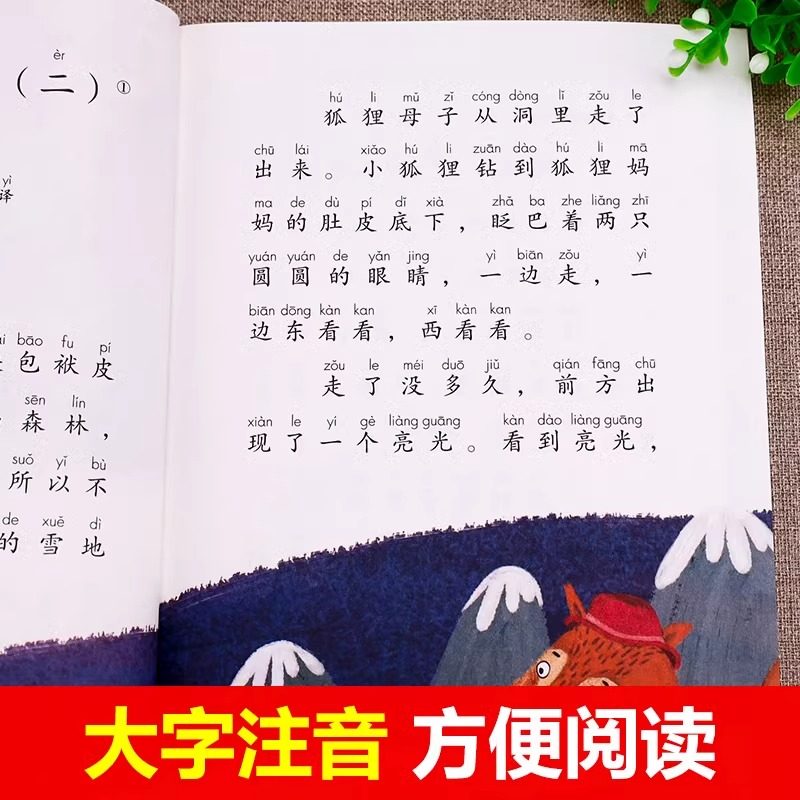 èr
（二）①
yì
译
bāo fu pí
包袱皮
sēn lín
森林，
suǒ yǐ bù
所以不
de xuě dì
的雪地
hú li mǔ zǐ cóng dòng lǐ zǒu le
狐狸母子从洞里走了
chū lái xiǎo hú li zuān dào hú li mā
出来。小狐狸钻到狐狸妈
ma de dù pí dǐ xià zhǎ ba zhe liǎng zhī
妈的肚皮底下，眨巴着两只
yuán yuán de yǎn jing yì biān zǒu yì
圆圆的眼睛，一边走，一
biān dōng kàn kan xī kàn kan
边东看看，西看看。
zǒu le méi duō jiǔ qián fāng chū
走了没多久，前方出
xiàn le yí gè liàng guāng kàn dào liàng guāng
现了一个亮光。看到亮光，
大字注音 方便阅读